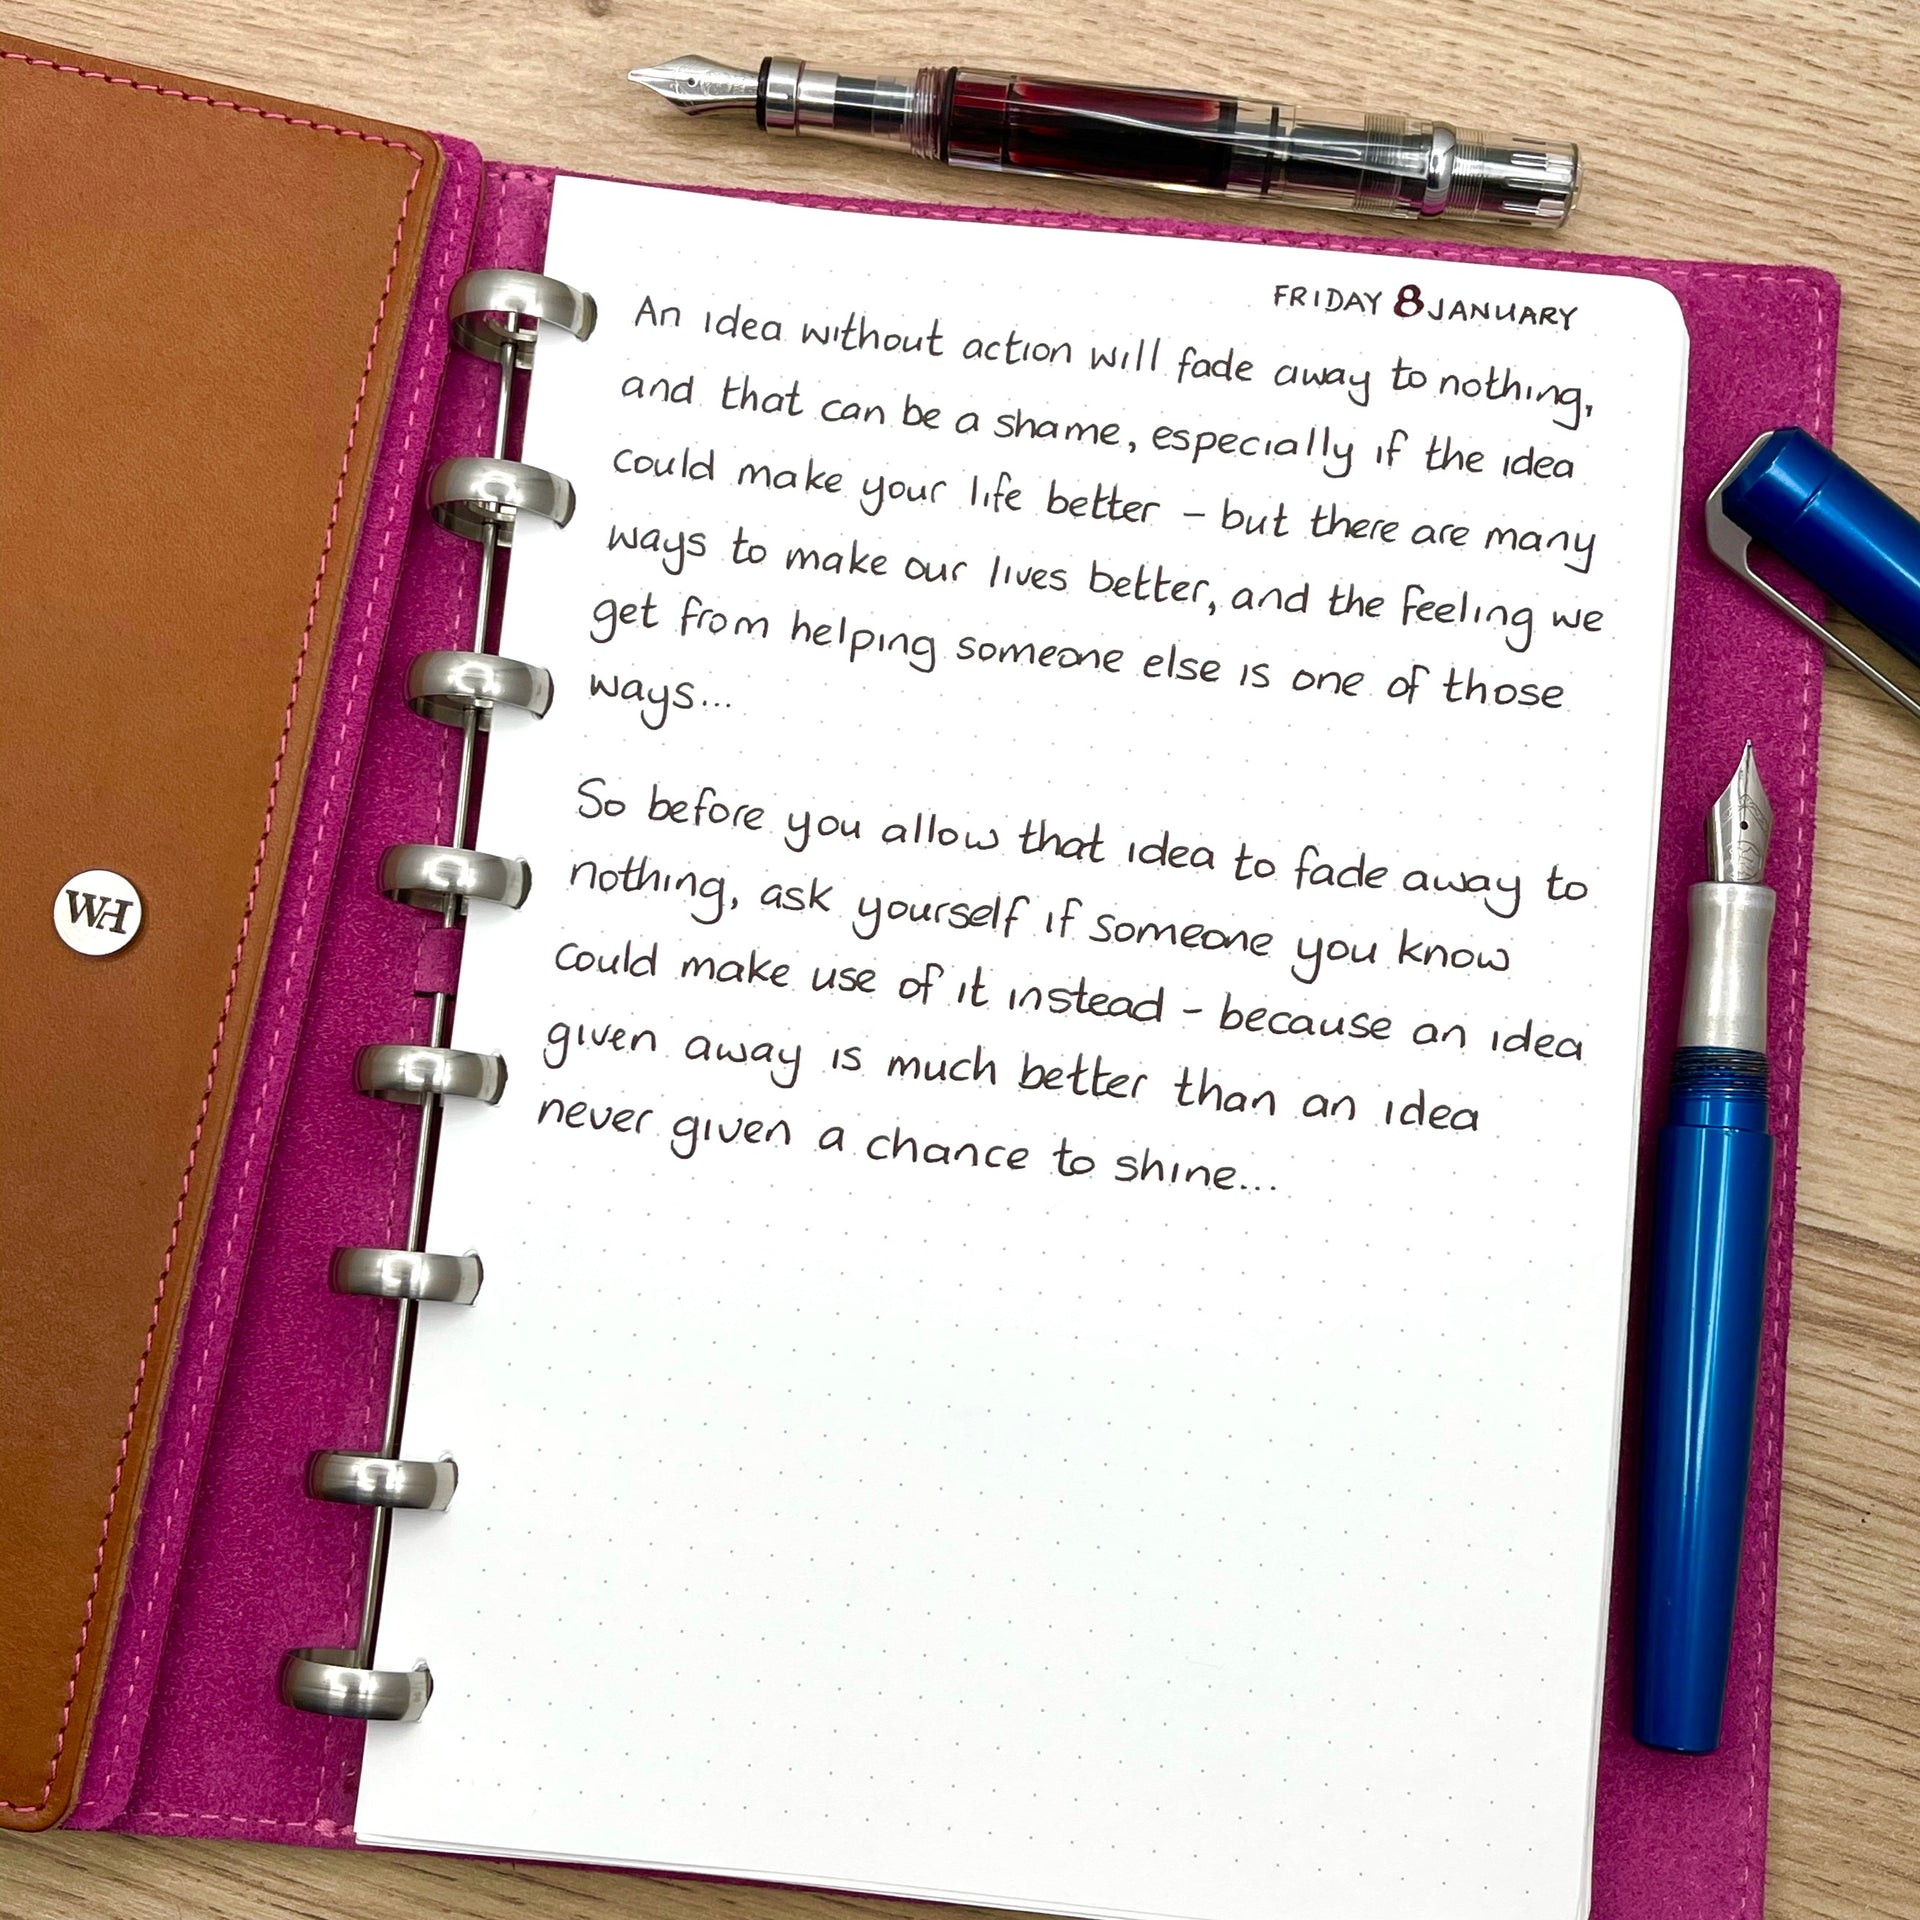 FRIDAY 8 JANUARY
An idea without action will fade away to nothing,
and that can be a shame, especially if the idea
could make your life better - but there are many
ways to make our lives better, and the feeling we
get from helping someone else is one of those
ways...
So before you allow that idea to fade away to
nothing, ask yourself if someone you know
could make use of it instead - because an idea
given away is much better than an idea
never given a chance to shine...
WH